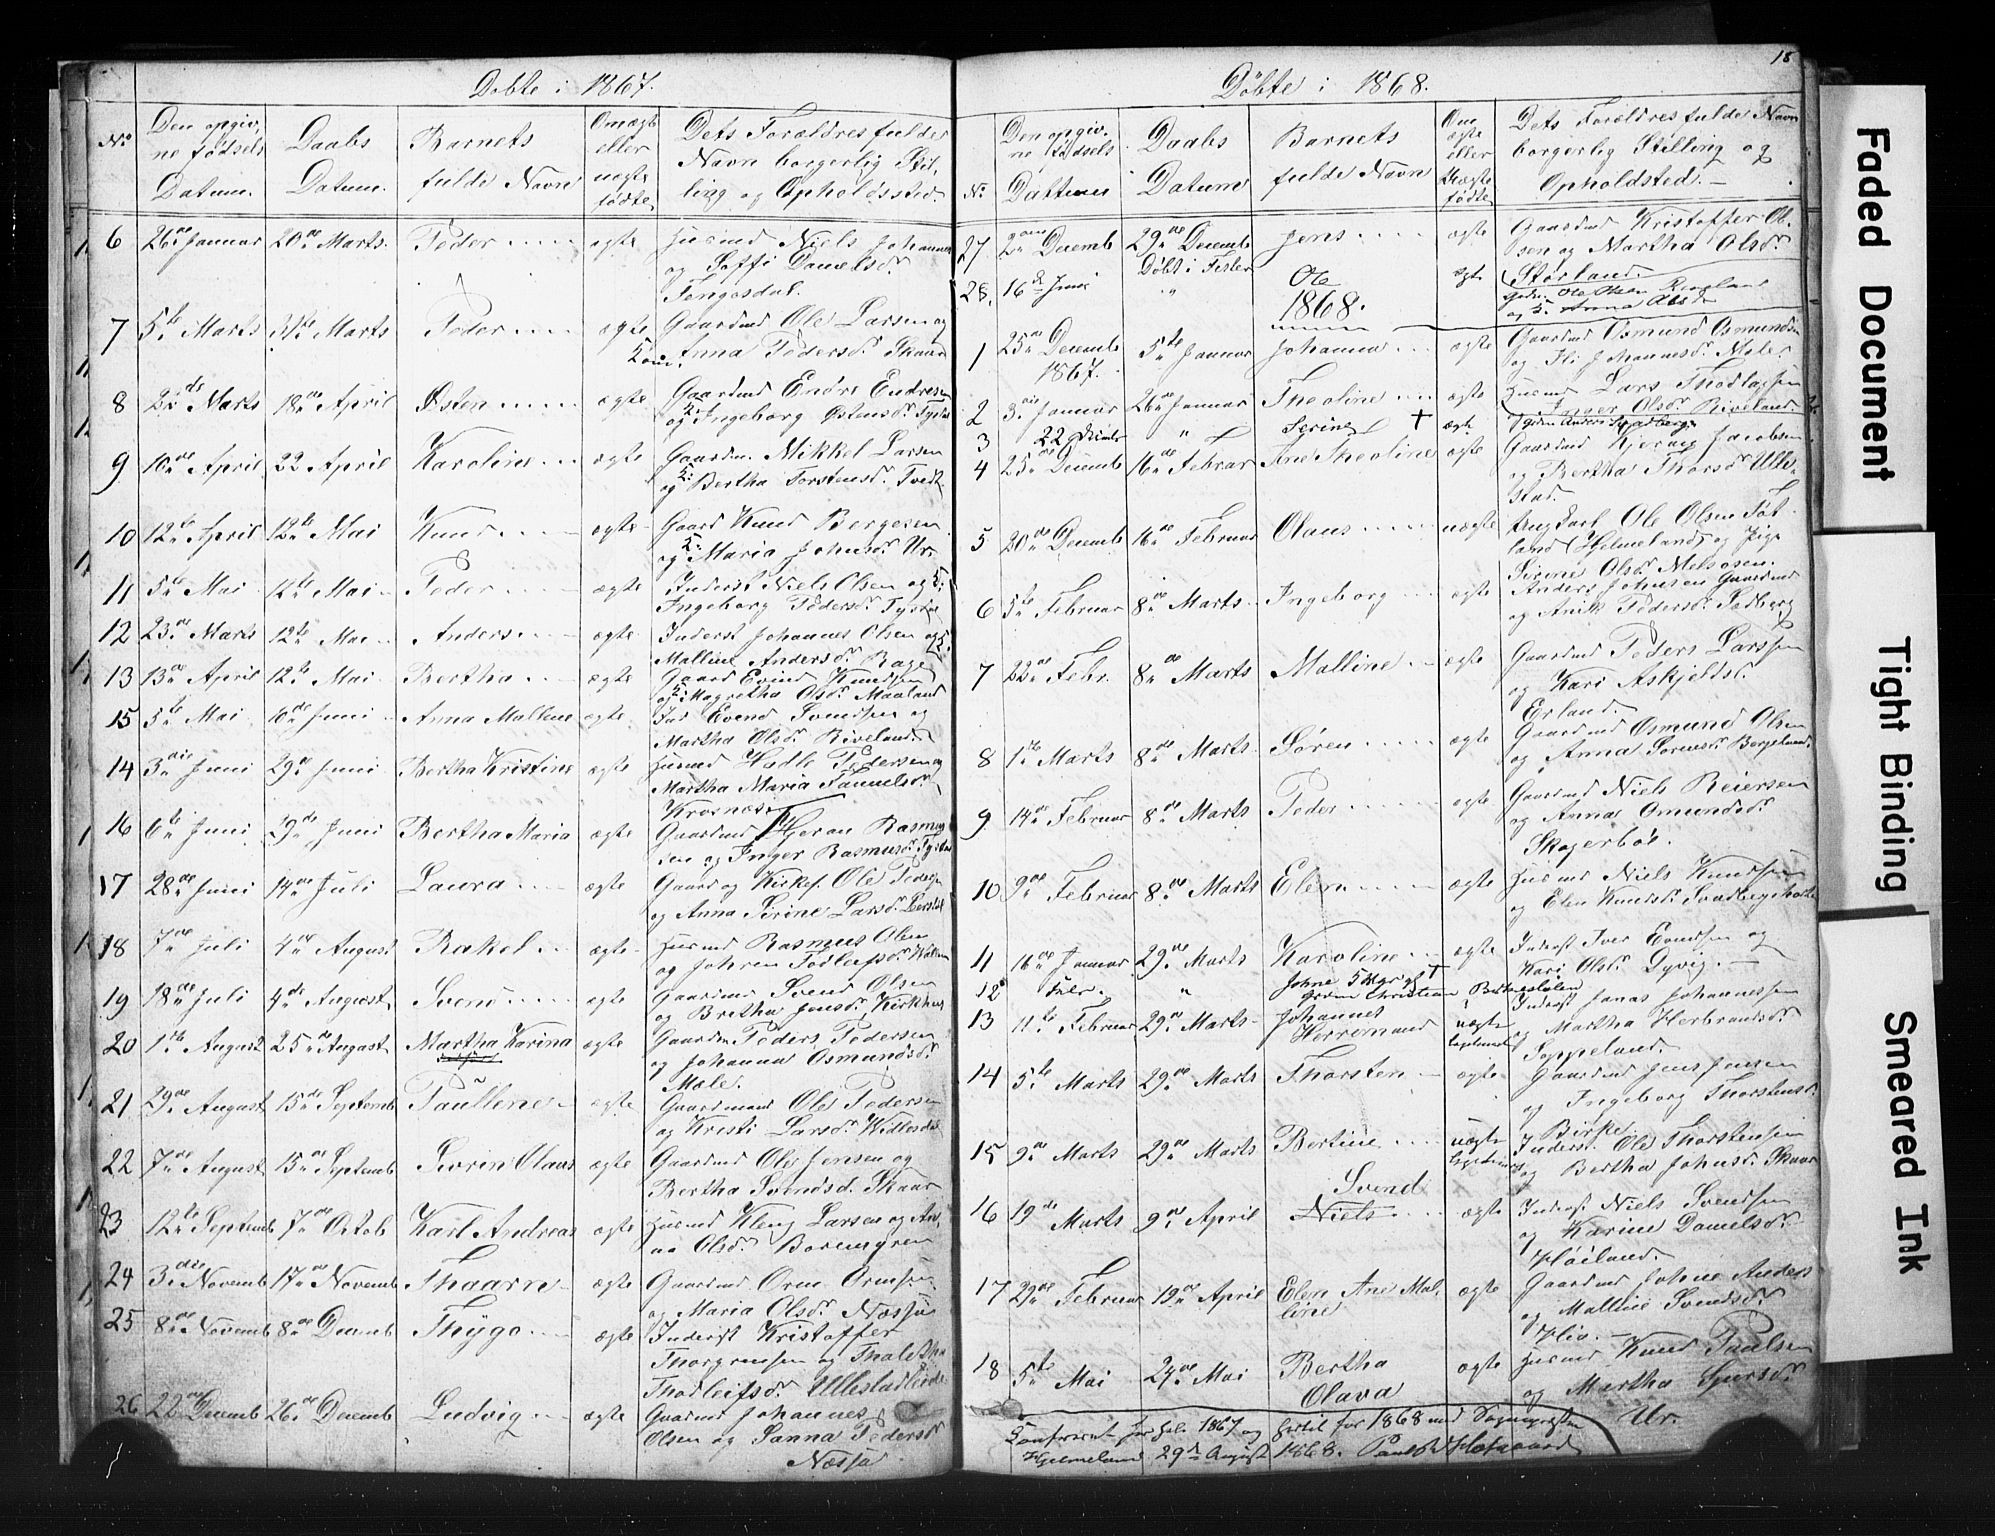 Døbte i 1867.
No
Den opgiv,
ne fødsels
Datum.
Daabs
Datum.
Barnets
fulde Navn
Om ægte
eller
uægte
fødte
Dets Forældres fulde
Navn borgerlig Stil,
ling og Opholdssted.
6 26de Januar 20de Marts Peder ægte Huusmd Niels Johannes
og Soffi Danielsdr
Tengesdal.
7 5te Marts 31te Marts Peder ægte Gaardmd Ole Larsen og
Anna Pedersdr Skaar
8 2de Marts 18de April Østen ægte Gaardmd Endre Endresen
og Ingeborg Østensdr
9 10de April 22 April Karoline ægte Gaardm. Mikkel Larsen
og Bertha Torstensdr Tvedt
10 12te April 12te Mai Knud ægte Gaard Knud Bergesen
og Maria Johnsdr Ur
11 5te Mai 12te Mai Peder ægte Inderst Niels Olsen og
Ingeborg Pedersdr
12 23de Marts 12te Mai Anders ægte Inderst Johannes Olsen og
Malline Andersdr Rage
13 13de April 12te Mai Bertha ægte Gaard Evind Knudsen
og Magretha Olsdr Maaland
15 5te Mai 10de Juni Anna Malline ægte Ind Evend Svendsen og
Martha Olsdr Riveland
14 3die Juni 29de Juni Bertha Kristine ægte Huusmd Hadle Pedersen og
Martha Maria Samuelsdr
Krosnæs
16 6te Juni 29de Juni Bertha Maria ægte Gaardmd Hjeran Rasmus
sen og Inger Rasmusdr
17 28de Juni 14de Juli Laura ægte Gaard og Kirkes. Ole Peders
og Anna Sirine Larsdr
18 7de Juli 4de August Rakel ægte Huusmd Rasmus Olsen
og Johren Todleifsdr
19 18de Juli 4de August Svend ægte Gaardmd Svend Olsen
og Bretha Jensdr Kirkhus
20 1te August 25de August Martha Karina ægte Gaardm Peders Pedersen
og Johanna Osmundsdr
Mæle.
21 29de August 15de Septemb Paulline ægte Gaardmand Ole Pedersen
og Kristi Larsdr
22 7de August 15de Septemb Sivrin Olaus ægte Gaardmd Ole Jensen og
Bertha Svendsd. Skaar
23 12te Septemb 7de Octob Karl Andreas ægte Huusmd Kleng Larsen og An,
na Olsdr
24 3die Novemb 17de Novemb Thaarn ægte Gaardmd Orm Ormsen
og Maria Olsdr Næssje
25 8de Novemb 8de Decemb Thygo ægte Inderst Kristoffer
Thorgrimsen og Thaletha
Thodleifsdr Ullestadleide
26 22de Decemb 26de Decemb Ludvig ægte Gaardmd Johannes
Olsen og Sanna Pedersd
Næssje
18
Døbte i 1868.
No.
Den opgiv.
ne fødsels
Dattum
Daabs
Datum
Barnets
fulde Navn
Om
ægte
eller
Uægte
fødte
Dets Forældres fulde Navn
borgerlig Stilling og
Opholdsted.
27 2den Decemb 29de Decemb Jens ægte Gaardmd Kristoffer Ol,
sen og Martha Olsdr
Storland.
28. 16de Juni Døbt i Fister " Ole ægte Gaardm Ole Olsen Riveland
og Anna Olsdr
1868.
1 25de Decemb 1867. 5te Januar Johanna ægte Gaardmd Osmund Osmundsen
og Ili Johannesdr Mæle
2 3die Januar 26de Januar Theoline ægte Huusmd Lars Thodlagsen
Inger Olsdr Riveland
3 22 Decemb " Serine † ægte Gdm Anders Sædberg
4 25de Decemb 16de Februar Ane Theoline ægte Gaardmd Kjerang Jacobsen
og Bertha Thorsdr Ulle,
stad.
5 20de Decemb 16de Februar Olaus uægte Ungkarl Ole Olsen Fat
land (Hjelmeland) og Pige
Sirine Olsdr
6 5te Februar 8de Marts Ingeborg ægte Anders Johnsen Gaardmd
og Anik Pedersdr Sadberg
7 22de Febr. 8de Marts Malline ægte Gaardmd Peders Larssen
og Kari Askjeldsd.
Erland.
8 1te Marts 8de Marts Søren ægte Gaardmd Osmund Olsen
og Anna Sørensdr
9 14de Februar 8de Marts Peder ægte Gaardmd Niels Reiersen
og Anna Omundsdr
Skogerbøe.
10 9de Februar 8de Marts Elen ægte Huusmd Niels Knudsen
og Elen Knudsdr
11 16de Januar 29de Marts Karoline ægte Inderst Iver Evindsen og
Kari Olsdr Dyvig.
12 Febr. " Johne †
13 11te Februar 29de Marts Johannes
Herremand uægte Inderst Jonas Johannessen
og Martha Herbrandsdr
Soppeland.
14 5te Marts 29de Marts Thorsten ægte Gaardmd Jens Jensen
og Ingeborg Thorstensdr
Birkje
15 9de Marts 29de Marts Bertine uægte Inderst Ole Thorstensen
og Bertha Johnsdr Skaar
16 19de Marts 9de April Svend
Niels ægte Inderst Niels Svendsen
og Karine Danielsdr
Høiland.
17 29de Februar 19de April Elen Ane Mal,
line ægte Gaardmd Johne Anders
og Malline Svendsdr
Hliv.
18 5te Mai 24de Mai Bertha
Olava ægte Huusmd Knud Paulsen
og Martha Sjursdr
Ur.
Confereret for hele 1867 og hertil for 1868 med Sognepræsten
Hjelmeland 29de August 1868.
Faded Document
Tight Binding
Smeared Ink